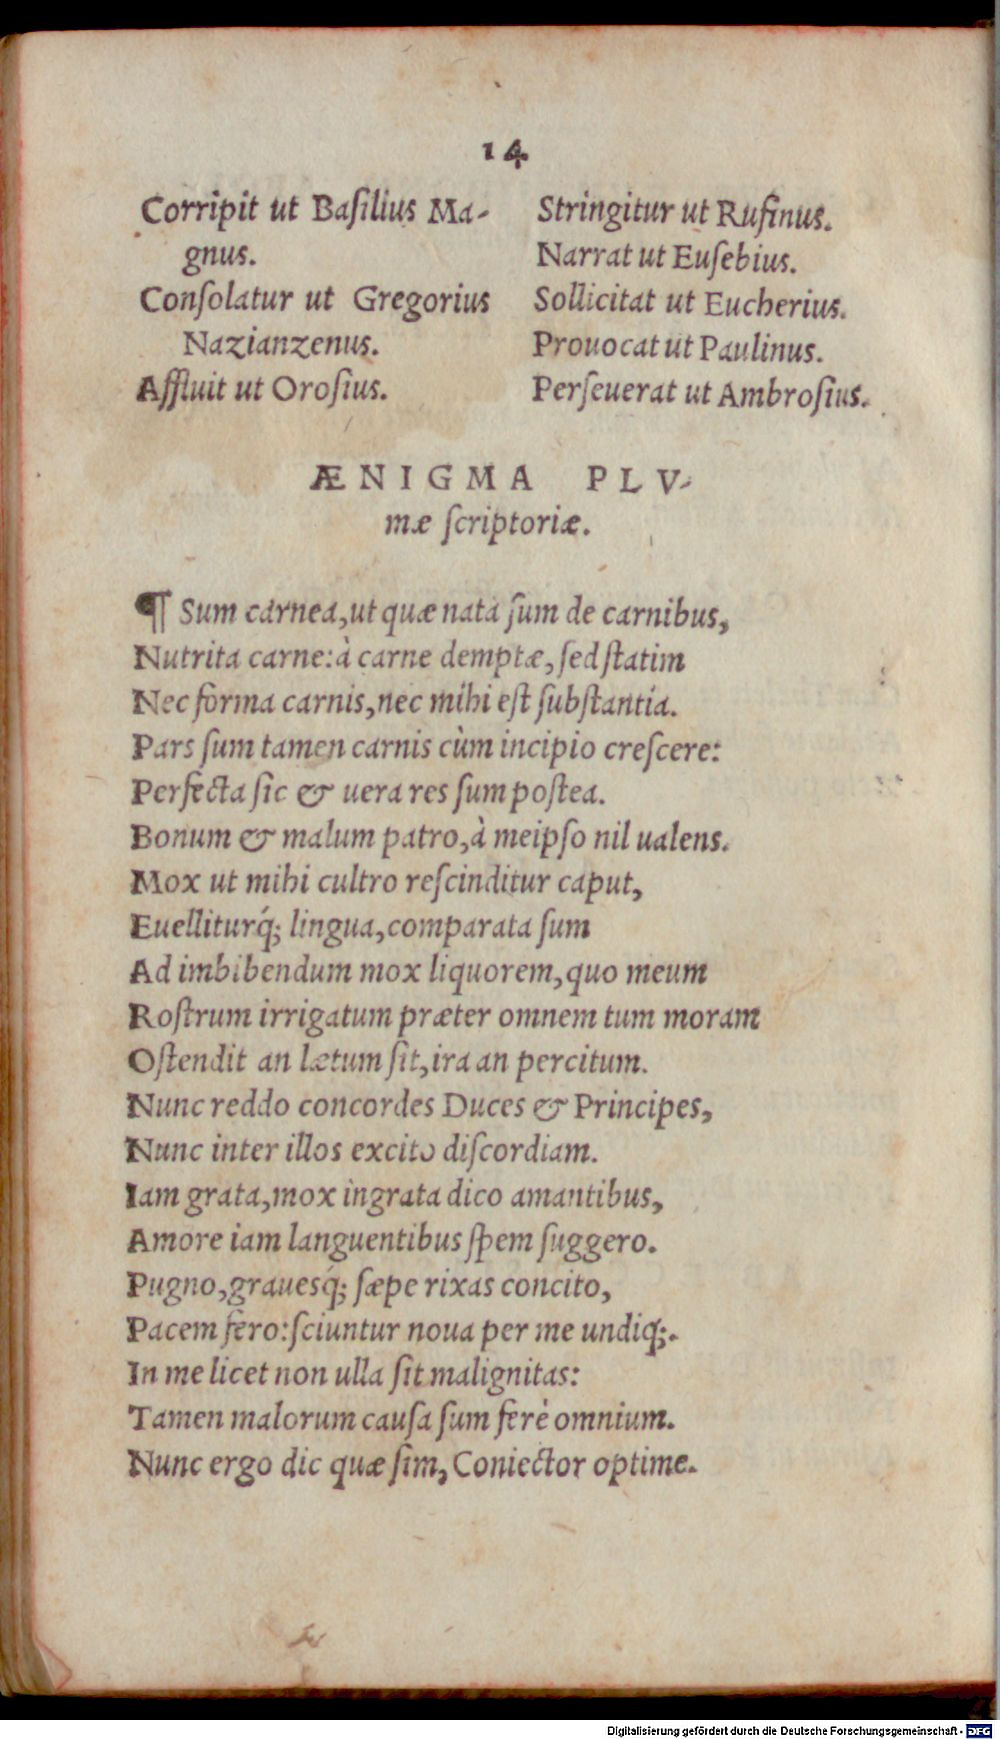 14
Corripit ut Baſilius Ma-
gnus.
Conſolatur ut Gregorius
Nazianzenus.
Affluit ut Oroſius.
Stringitur ut Rufinus.
Narrat ut Euſebius.
Sollicitat ut Eucherius.
Prouocat ut Paulinus.
Perſeuerat ut Ambroſius.
ÆNIGMA PLV-
mæ ſcriptoriæ.
¶ Sum carnea, ut quæ nata ſum de carnibus,
Nutrita carne: à carne demptæ, ſed ſtatim
Nec forma carnis, nec mihi eſt ſubſtantia.
Pars ſum tamen carnis cùm incipio creſcere:
Perfecta ſic & uera res ſum poſtea.
Bonum & malum patro, à meipſo nil ualens.
Mox ut mihi cultro reſcinditur caput,
Euelliturq́; lingua, comparata ſum
Ad imbibendum mox liquorem, quo meum
Roſtrum irrigatum præter omnem tum moram
Oſtendit an lætum ſit, ira an percitum.
Nunc reddo concordes Duces & Principes,
Nunc inter illos excito diſcordiam.
Iam grata, mox ingrata dico amantibus,
Amore iam languentibus ſpem ſuggero.
Pugno, grauesq́; ſæpe rixas concito,
Pacem fero: ſciuntur noua per me undiq;.
In me licet non ulla ſit malignitas:
Tamen malorum cauſa ſum ferè omnium.
Nunc ergo dic quæ ſim, Coniector optime.
Digitalisierung gefördert durch die Deutsche Forschungsgemeinschaft - DFG